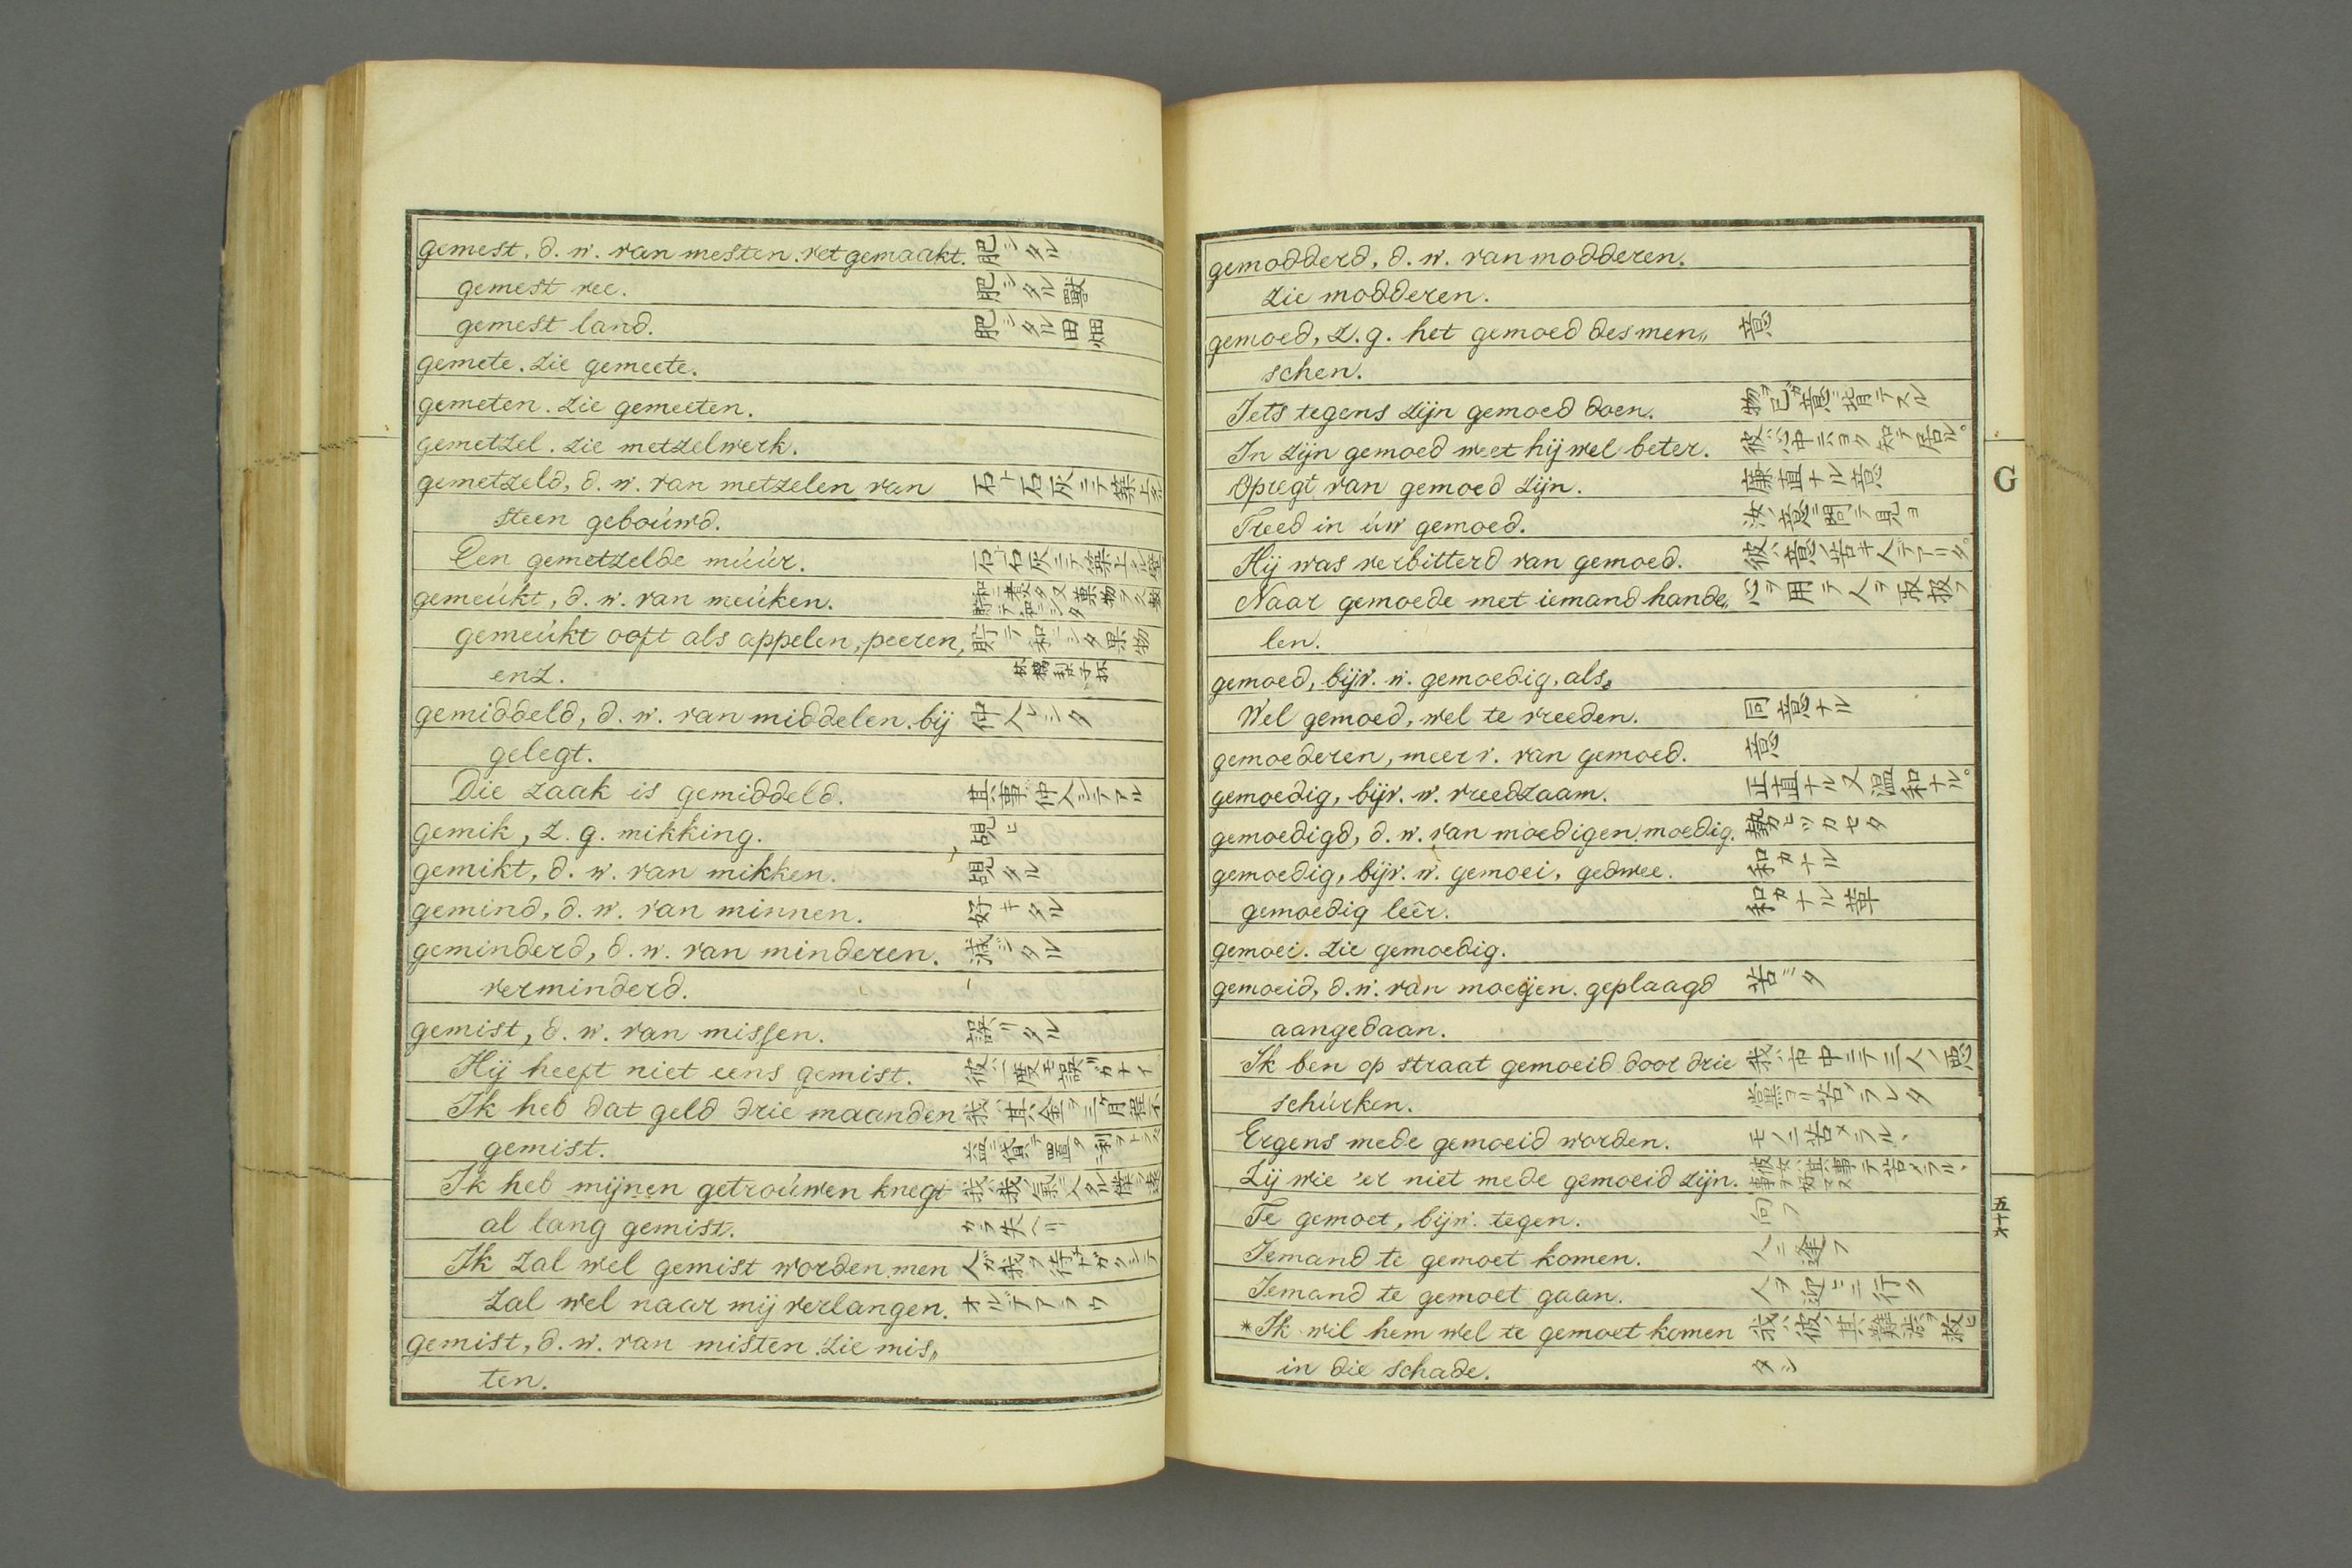 gemest, d. w. van mesten. vet gemaakt. 肥シタル
gemest vee. 肥シタル獸
gemest land. 肥シタル田畑
gemete. zie gemeete.
gemeten. zie gemeeten.
gemetzel. zie metzelwerk.
gemetzeld, d. w. van metzelen van 石ト石灰ニテ築上タル
steen geboúwd.
Een gemetzelde múúr. 石ト石灰ニテ築上タル壁
gemeúkt, d. w. van meúken.
gemeúkt ooft als appelen, peeren, 貯テ和ニシタ果物
enz. 林檎梨子抔
gemiddeld, d. w. van middelen. bij 仲人シタ
gelegt.
Die zaak is gemiddeld. 其事仲人シテアル
gemik, z. g. mikking. 覘ヒ
gemikt, d. w. van mikken. 覘タル
gemind, d. w. van minnen. 好キタル
geminderd, d. w. van minderen. 減ジタル
verminderd.
gemist, d. w. van missen. 誤リタル
Hij heeft niet eens gemist. 彼ハ一度モ誤ガナイ
Ik heb dat geld drie maanden 我ハ其金ヲ三ヶ月程不
gemist. 益ニ貸テ置タ
Ik heb mijnen getroúwen knegt
al lang gemist. カラ失ヘリ
Ik zal wel gemist worden. men 人ガ我ヲ待ナガクシテ
zal wel naar mij verlangen. オルデアラウ
gemist, d. w. van misten. zie mis„
ten.
gemodderd, d. w. van modderen.
zie modderen.
gemoed, z. g. het gemoed des men„ 意
schen.
Iets tegens zijn gemoed doen. 物ヲ己ガ意ニ背テスル
In zijn gemoed weet hij wel beter. 彼ハ心中ニヨク知テ居ル。
Opregt van gemoed zijn. 廉直ナル意
Treed in úw gemoed. 汝ノ意ニ問テ見ヨ
Hij was verbitterd van gemoed. 彼ハ意ノ苦キ人デアリタ。
Naar gemoede met iemand hande„ 心ヲ用テ人ヲ取扱フ
len.
gemoed, bijv. w. gemoedig, als,
Wel gemoed, wel te vreeden. 同意ナル
gemoederen, meerv. van gemoed. 意
gemoedig, bijv. w. vreedzaam. 正直ナル又温和ナル。
gemoedigd, d. w. van moedigen. moedig. 勢ヒツカセタ
gemoedig, bijv. w. gemoei, gedwee. 和カナル
gemoedig leêr. 和カナル革
gemoei. zie gemoedig.
gemoeid, d. w. van moeijen. geplaagd 苦シタ
aangedaan.
Ik ben op straat gemoeid door drie 我ハ市中ニテ三人ノ悪
schúrken. 黨ヨリ苦メラレタ
Ergens mede gemoeid worden. モノニ苦メラル、
Zij wie 'er niet mede gemoeid zijn.
Te gemoet, bijw. tegen. 向フ
Iemand te gemoet komen. 人ニ逢フ
Iemand te gemoet gaan. 人ヲ迎ヒニ行ク
*Ik wil hem wel te gemoet komen 我ハ彼ノ其難澁ヲ救ヒ
in die schade. タシ
G
五十六